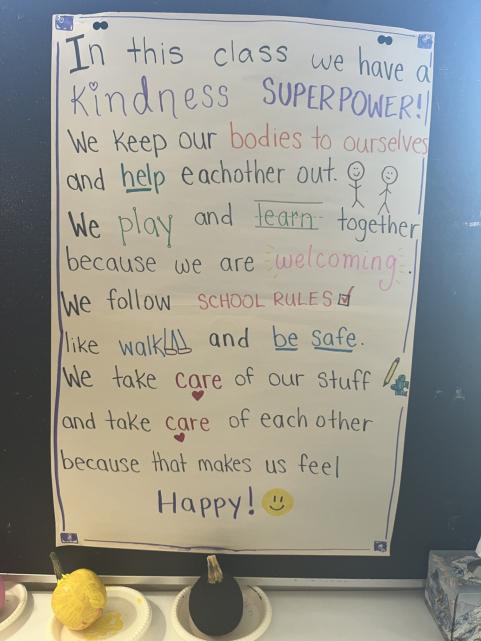 In this class we have a
Kindness SUPERPOWER!
We Keep our bodies to ourselves
and help eachother out.
We play and learn together
because we are welcoming.
We follow SCHOOL RULES
like walk and be safe.
We take care of our stuff
and take care of each other
because that makes us feel
Happy!